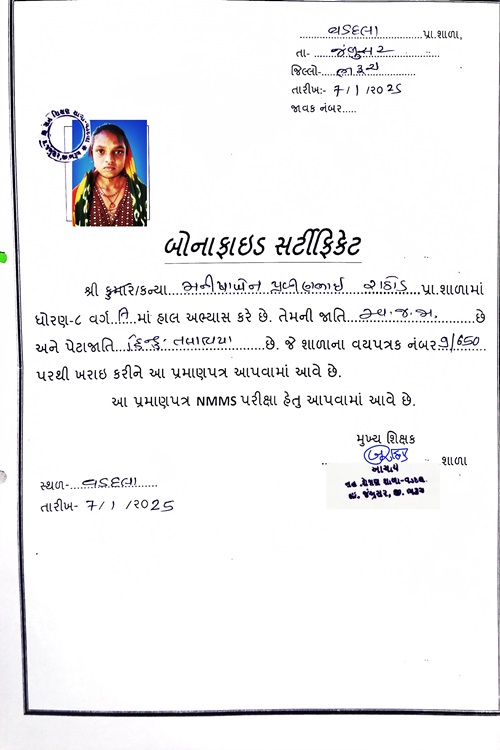 વડદલા પ્રા.શાળા,
તા- જંબુસર
જિલ્લો- ભરૂચ
તારીખ:- 7/1/2025
જાવક નંબર.....
બોનાફાઇડ સર્ટીફિકેટ
શ્રી કુમાર/કન્યા મનીષાબેન પ્રવીણભાઈ રાઠોડ પ્રા.શાળામાં
ધોરણ-૮ વર્ગ માં હાલ અભ્યાસ કરે છે. તેમની જાતિ છે
અને પેટાજાતિ હિન્દુ તલાવીયા છે. જે શાળાના વયપત્રક નંબર 9/650
પરથી ખરાઇ કરીને આ પ્રમાણપત્ર આપવામાં આવે છે.
આ પ્રમાણપત્ર NMMS પરીક્ષા હેતુ આપવામાં આવે છે.
મુખ્ય શિક્ષક
શાળા
આચાર્ય
સ્થળ- વડદલા
તા. જંબુસર, જી. ભરૂચ
તારીખ- 7/1/2025